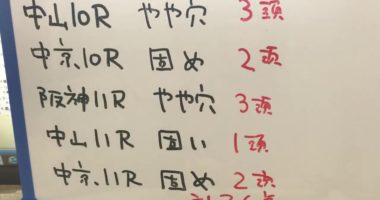 中山10R やや穴 3頭
中京10R 固め 2頭
阪神11R やや穴 3頭
中山11R 固い 1頭
中京11R 固め 2頭